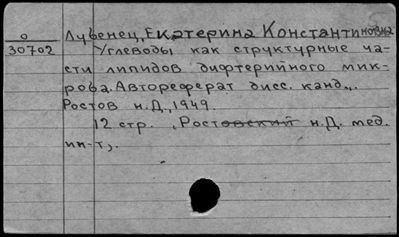 О
30702
Лувенец, Екатерина Константиновна
Углеводы как структурные ча-
сти липидов дифтерийного мик-
роба. Автореферат дисс. канд.,.
Ростов н.Д., 1949.
12 стр. , Ростовский н.Д. мед.
ин-т,.